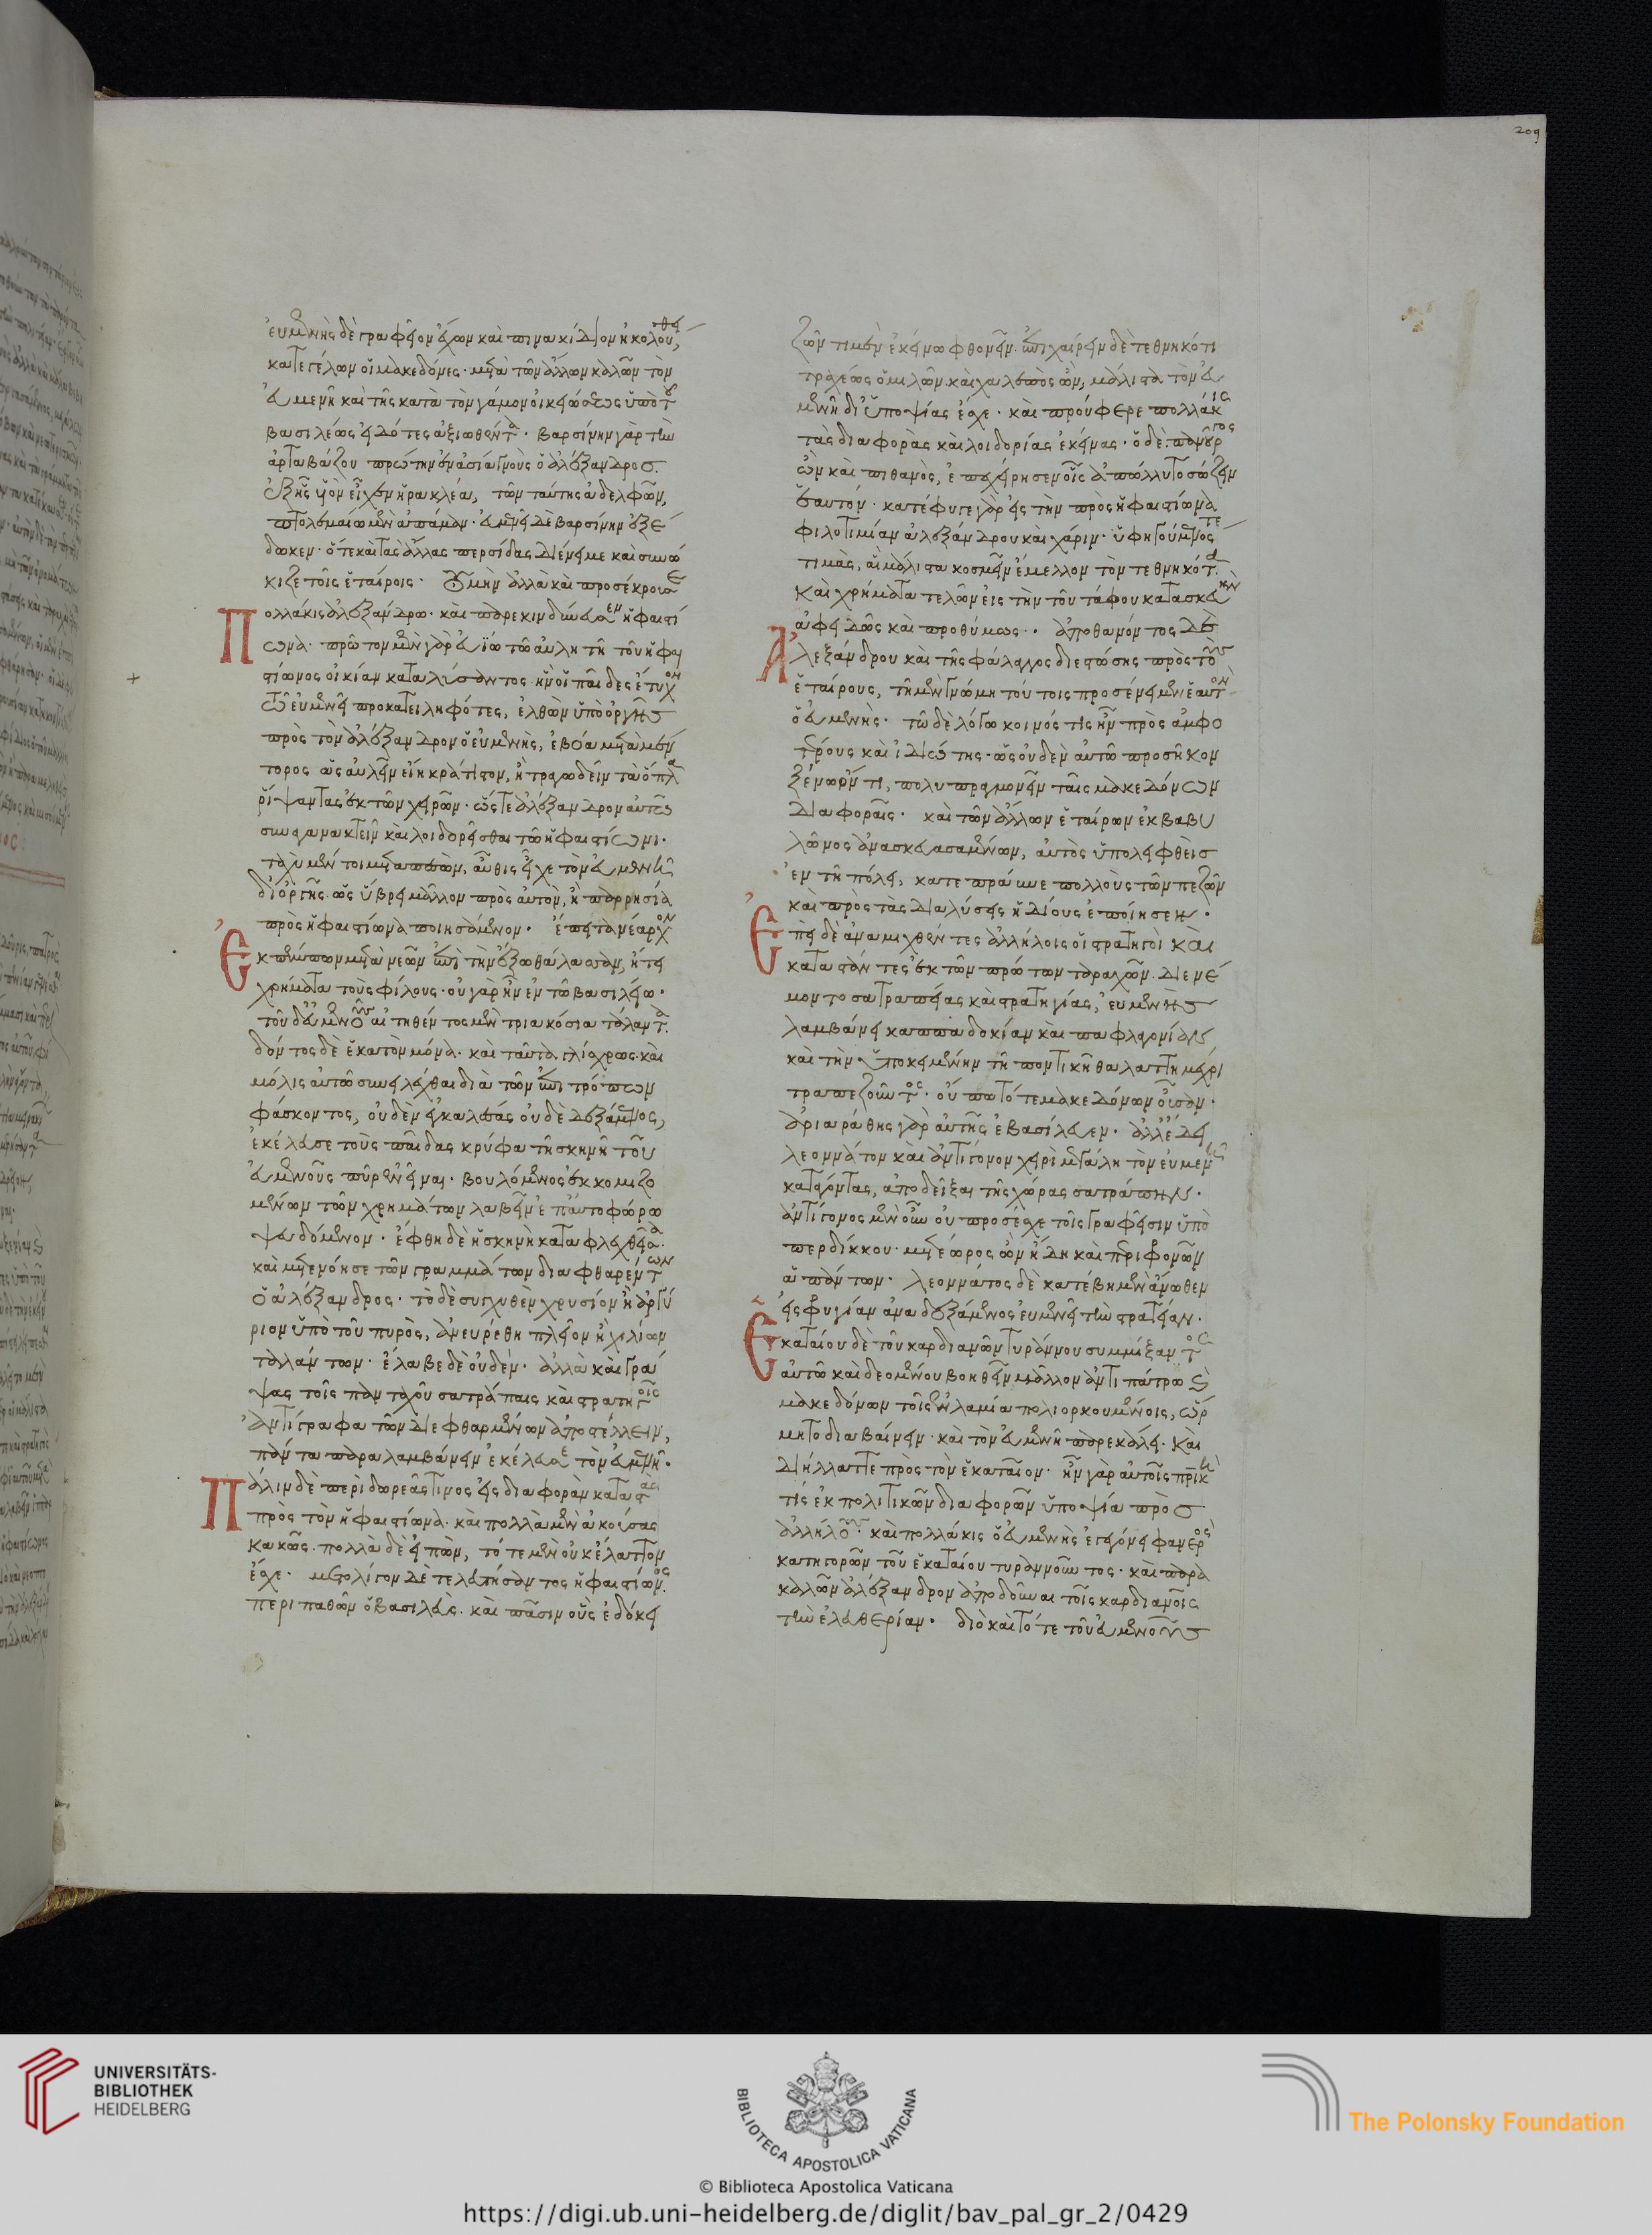 ἐυμένης δὲ γραφεῖον ἔχων καὶ πινακίδιον ἠκολούθει,
κατεγέλων οἱ μακεδόνες. μετὰ τῶν ἄλλων καλῶν τὸν
εὐμενῆ καὶ τῆς κατὰ τὸν γάμον οἰκειώσεως ὑπὸ τοῦ
βασιλέως εἰδότες ἀξιωθέντα. βαρσίνην γὰρ τὴν
ἀρταβάζου πρώτην ἐν ἀσία γνοὺς ὁ ἀλέξανδρος.
ἐξ ἧς υἱὸν εἶχεν ἡρακλέα, τῶν ταύτης ἀδελφῶν,
πτολεμαίω μὲν ἀπάμαν. εὐμενεῖ δὲ βαρσίνην ἐξέ
δωκεν. ὅτε καὶ τὰς ἄλλας περσίδας διένειμε καὶ συνώ
κιζε τοῖς ἑταίροις. οὐ μὴν ἀλλὰ καὶ προσέκρουσε
Πολλάκις ἀλεξάνδρω. καὶ παρεκινδύνευσεν ἡφαιστί
ωνα. πρῶτον μὲν γὰρ εὐΐω τῶ αὐλητῆ τοῦ ἡφαι
στίωνος οἰκίαν καταλύσαντος. ἣν οἱ παῖδες ἔτυχον
τῶ εὐμενεῖ προκατειληφότες, ἐλθὼν ὑπὸ ὀργῆς
πρὸς τὸν ἀλέξανδρον ὁ εὐμενὴς, ἐβόα μετὰ μέν
τορος ὡς αὐλεῖν εἴη κράτιστον, ἢ τραγωδεῖν τὰ ὅπλα
ῥίψαντας ἐκ τῶν χειρῶν. ὥστε ἀλέξανδρον αὐτῶ
συναγανακτεῖν καὶ λοιδορεῖσθαι τῶ ἡφαιστίωνι.
ταχὺ μέν τοι μεταπεσὼν, αὖθις εἶχε τὸν εὐμενῆ
δι' ὀργῆς. ὡς ὕβρει μᾶλλον πρὸς αὐτὸν, ἢ παρρησία
πρὸς ἡφαιστίωνα ποιησάμενον. ἔπειτα νέαρχον
Ἐκπέμπων μετὰ νεῶν ἐπὶ τὴν ἔξω θάλασσαν, ἤτει
χρήματα τοὺς φίλους. οὐ γὰρ ἦν ἐν τῶ βασιλείω.
τοῦ δ' εὐμενοῦς αἰτηθέντος μὲν τριακόσια τάλαντα.
δόντος δὲ ἑκατὸν μόνα. καὶ ταῦτα γλίσχρως. καὶ
μόλις αὐτῶ συνειλέχθαι διὰ τῶν ἐπιτρόπων
φάσκοντος, οὐδὲν ἐγκαλέσας οὐδὲ δεξάμενος,
ἐκέλευσε τοὺς παῖδας κρύφα τῆ σκηνῆ τοῦ
εὐμενοῦς πῦρ ἐνεῖναι. βουλόμενος ἐκκομιζο
μένων τῶν χρημάτων λαβεῖν ἐπ' αὐτοφώρω
ψευδόμενον. ἔφθη δὲ ἡ σκηνὴ καταφλεχθεῖσα.
καὶ μετενόησε τῶν γραμμάτων διαφθαρέντων
ὁ ἀλέξανδρος. τὸ δὲ συγχυθὲν χρυσίον ἢ ἀργύ
ριον ὑπὸ τοῦ πυρὸς, ἀνευρέθη πλεῖον ἢ χιλίων
ταλάντων. ἔλαβε δὲ οὐδέν. ἀλλὰ καὶ γρά
ψας τοῖς πανταχοῦ σατράπαις καὶ στρατηγοῖς
ἀντίγραφα τῶν διεφθαρμένων ἀποστέλλειν,
πάντα παραλαμβάνειν ἐκέλευσε τὸν εὐμενῆ.
Πάλιν δὲ περὶ δωρεᾶς τινος εἰς διαφορὰν καταστὰς
πρὸς τὸν ἡφαιστίωνα. καὶ πολλὰ μὲν ἀκούσας
κακῶς. πολλὰ δὲ εἰπὼν, τότε μὲν οὐκ ἔλαττον
ἔσχε. μετ' ὀλίγον δὲ τελευτήσαντος ἡφαιστίωνος.
περιπαθῶν ὁ βασιλεὺς. καὶ πᾶσιν οὓς ἐδόκει
ζῶντι μὲν ἐκείνω φθονεῖν. ἐπιχαίρειν δὲ τεθνηκότι
τραχέως ὁμιλῶν καὶ χαλεπὸς ὢν, μάλιστα τὸν εὐ
μενῆ δι' ὑποψίας ἔσχε. καὶ προύφερε πολλάκις
τὰς διαφορὰς καὶ λοιδορίας ἐκείνας. ὁ δὲ πανοῦργος
ὢν καὶ πιθανὸς, ἐπεχείρησεν οἷς ἀπώλλυτο σώζειν
ἑαυτόν. κατέφυγε γὰρ εἰς τὴν πρὸς ἡφαιστίωνα
φιλοτιμίαν ἀλεξάνδρου καὶ χάριν. ὑφηγούμενός τε
τιμὰς, αἳ μάλιστα κοσμεῖν ἔμελλον τὸν τεθνηκότα.
καὶ χρήματα τελῶν εἰς τὴν τοῦ τάφου κατασκευὴν
ἀφειδῶς καὶ προθύμως. ἀποθανόντος δὲ
Ἀλεξάνδρου καὶ τῆς φάλαγγος διεστώσης πρὸς τοὺς
ἑταίρους, τῆ μὲν γνώμη τούτοις προσένειμεν ἑαυτὸν
ὁ εὐμενὴς. τῶ δὲ λόγω κοινός τις ἦν πρὸς ἀμφο
τέρους καὶ ἰδιώτης. ὡς οὐδὲν αὐτῶ προσῆκον
ξένω ὄντι, πολυπραγμονεῖν ταῖς μακεδόνων
διαφοραῖς. καὶ τῶν ἄλλων ἑταίρων ἐκ βαβυ
λῶνος ἀνασκευασαμένων, αὐτὸς ὑπολειφθεὶς
ἐν τῆ πόλει, κατεπράυνε πολλοὺς τῶν πεζῶν
καὶ πρὸς τὰς διαλύσεις ἡδίους ἐποίησεν.
Ἐπεὶ δὲ ἀναμιχθέντες ἀλλήλοις οἱ στρατηγοὶ καὶ
καταστάντες ἐκ τῶν πρώτων ταραχῶν. διενέ
μοντο σατραπείας καὶ στρατηγίας, εὐμενὴς
λαμβάνει καππαδοκίαν καὶ παφλαγονίαν
καὶ τὴν ὑποκειμένην τῆ ποντικῆ θαλάττη μέχρι
τραπεζοῦντος. οὔπω τότε μακεδόνων οὖσαν.
ἀριαράθης γὰρ αὐτῆς ἐβασίλευεν. ἀλλ' ἔδει
λεοννάτον καὶ ἀντίγονον χειρὶ μεγάλη τὸν εὐμενῆ
καταγόντας, ἀποδεῖξαι τῆς χώρας σατράπην.
ἀντίγονος μὲν οὖν οὐ προσέσχε τοῖς γραφεῖσιν ὑπὸ
περδίκκου. μετέωρος ὢν ἤδη καὶ περιφρονῶν
ἁπάντων. λεοννάτος δὲ κατέβη μὲν ἄνωθεν
εἰς φρυγίαν ἀναδεξάμενος εὐμενεῖ τὴν στρατείαν.
Ἑκαταίου δὲ τοῦ καρδιανῶν τυράννου συμμίξαντος
αὐτῶ καὶ δεομένου βοηθεῖν μᾶλλον ἀντιπάτρω καὶ
μακεδόνων τοῖς ἐν λαμία πολιορκουμένοις, ὥρ
μητο διαβαίνειν. καὶ τὸν εὐμενῆ παρεκάλει. καὶ
διήλλαττε πρὸς τὸν ἑκαταῖον. ἦν γὰρ αὐτοῖς πατρική
τις ἐκ πολιτικῶν διαφορῶν ὑποψία πρὸς
ἀλλήλους. καὶ πολλάκις ὁ εὐμενὴς ἐγεγόνει φανερὸς
κατηγορῶν τοῦ ἑκαταίου τυραννοῦντος. καὶ παρα
καλῶν ἀλέξανδρον ἀποδοῦναι τοῖς καρδιανοῖς
τὴν ἐλευθερίαν. διὸ καὶ τότε τοῦ εὐμενοῦς
209
UNIVERSITÄTS-
BIBLIOTHEK
HEIDELBERG
BIBLIOTECA APOSTOLICA VATICANA
The Polonsky Foundation
© Biblioteca Apostolica Vaticana
https://digi.ub.uni-heidelberg.de/diglit/bav_pal_gr_2/0429